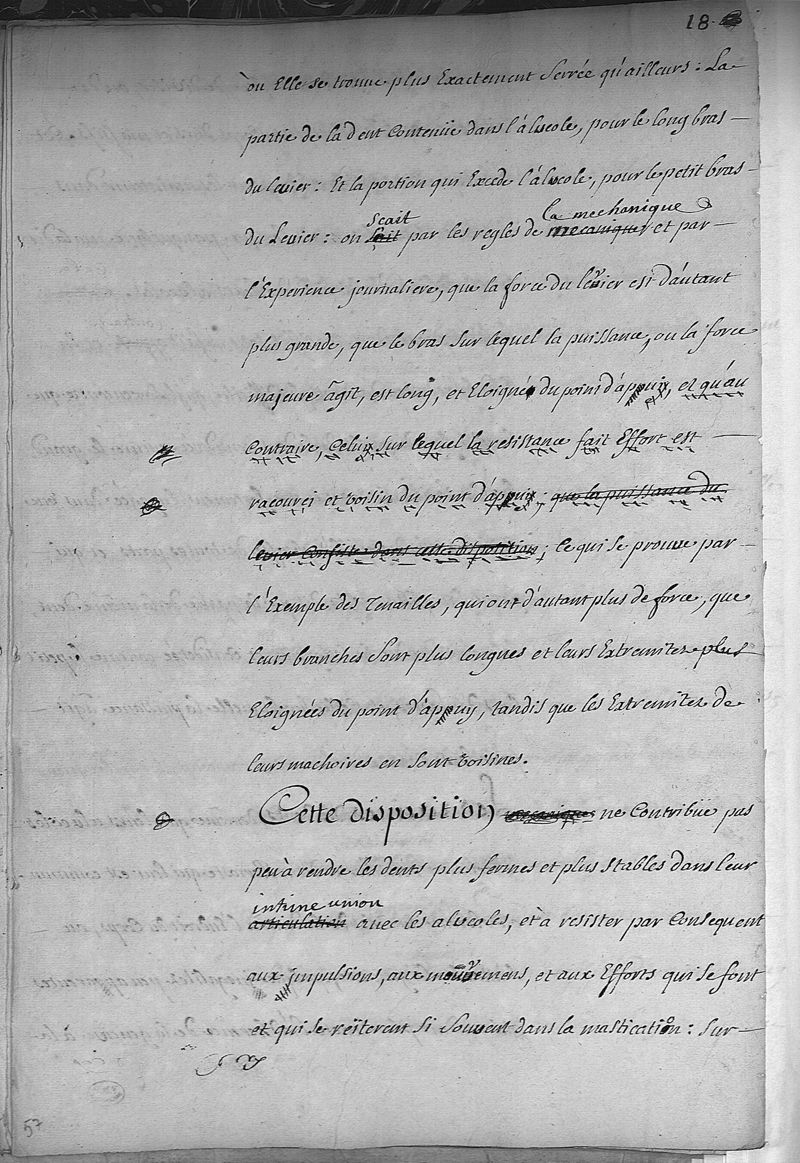 18
où Elle se trouve plus Exactement serrée qu'ailleurs : La
partie de la dent Contenüe dans l'áluéole, pour le long bras
du leuier : Et la portion qui Excede l'áluéole, pour le petit bras
scait la mechanique
du Leuier : on sait par les regles de mecanique et par
l'Experience journaliere, que la force du lévier est d'autant
plus grande, que le bras sur lequel la puissance, ou la force
majeure agit, est long, et Eloigné du point d'áppuix, et qu'au
Contraire, Celuix sur lequel la resistance fait Effort est
racourci et voisin du point d'áppuix, que la puissance du
levier Consiste dans cette disposition ; ce qui se prouve par
l'Exemple des Tenailles, qui ont d'autant plus de force, que
leurs branches sont plus longues et leurs Extremitez plus
Eloignées du point d'áppuy, tandis que les Extremitez de
leurs machoires en sont voisines.
Cette disposition mecanique ne Contribüe pas
peu à rendre les dents plus fermes et plus stables dans leur
intime union
articulation avec les alueoles, et à resister par Consequent
aux impulsions, aux mouvemens, et aux Efforts qui se font
et qui se reïterent si souvent dans la mastication : sur
57